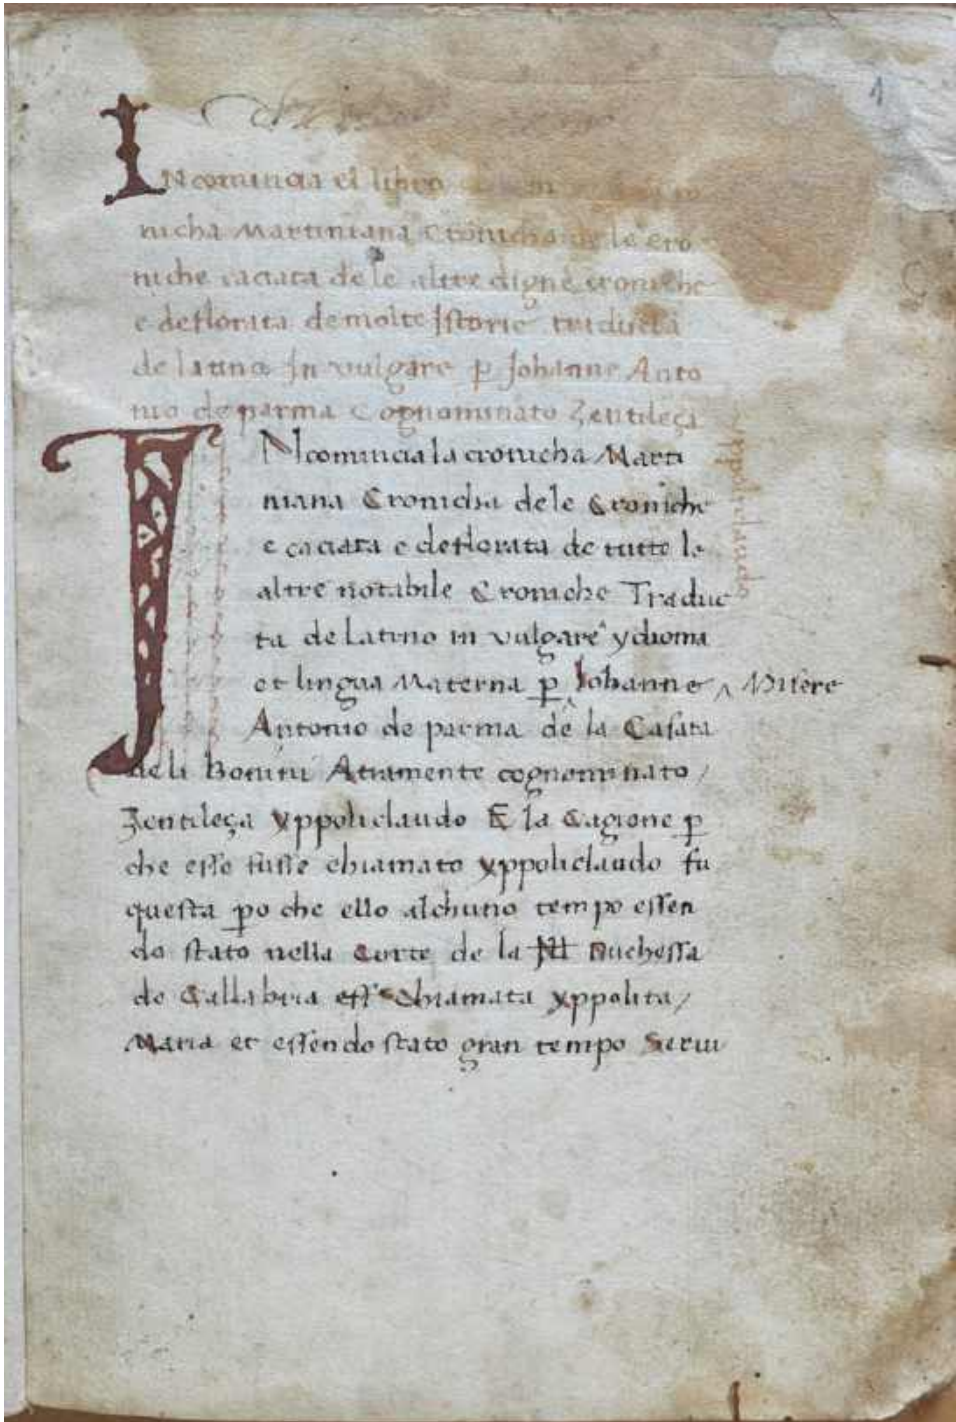 1
INcomincia el libro
nicha Martiniana Cronicha de le cro
niche caciata de le altre digne croniche
e deflorata de molte Istorie traducta
de latino In vulgare p̲ Johanne Anto
nio de parma Cognominato Zentileça
INcomincia la cronicha Marti
niana Cronicha dele Croniche
e caciata e deflorata de tutte le
altre notabile Croniche Traduc
ta de Latino in vulgare ydioma
et lingua Materna p̲ Iohanne ‸
Antonio de parma de la Casata
deli Bonini Atramente cognominato /
Zentileça yppoliclaudo E la Cagione p̲
che esse fusse chiamato yppoliclaudo fu
questa p̲o che ello alchuno tempo essen
do stato nella Corte de la Duchessa
de Callabria chiamata yppolita /
Maria et essendo stato gran tempo Serui